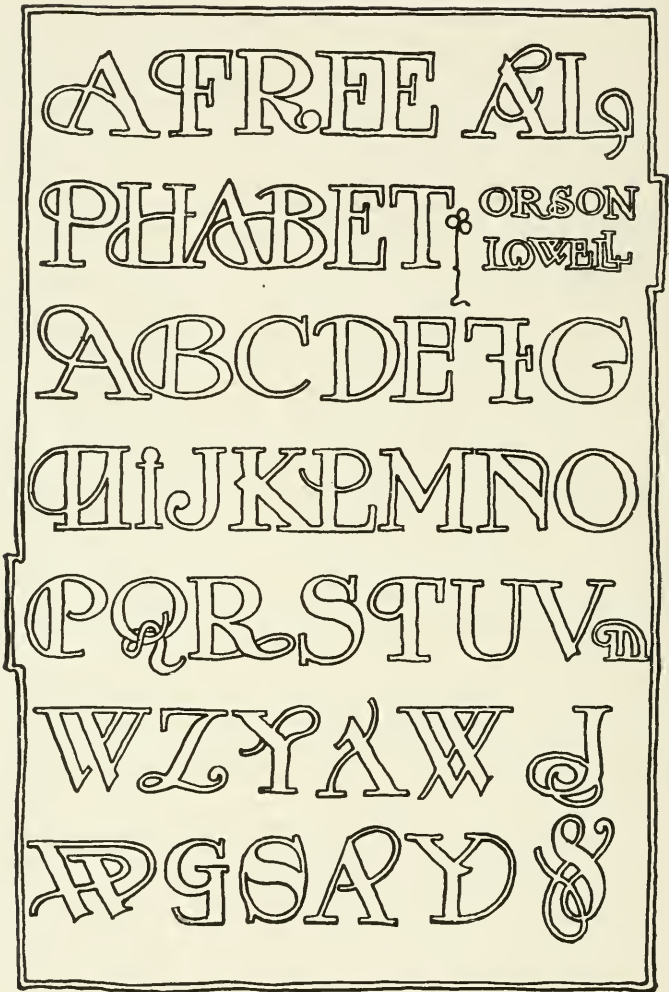 A FREE AL
PHABET
ORSON
LOWELL
ABCDEFG
HIJKLMNO
PQRSTUVM
WZY W J
GSAY &